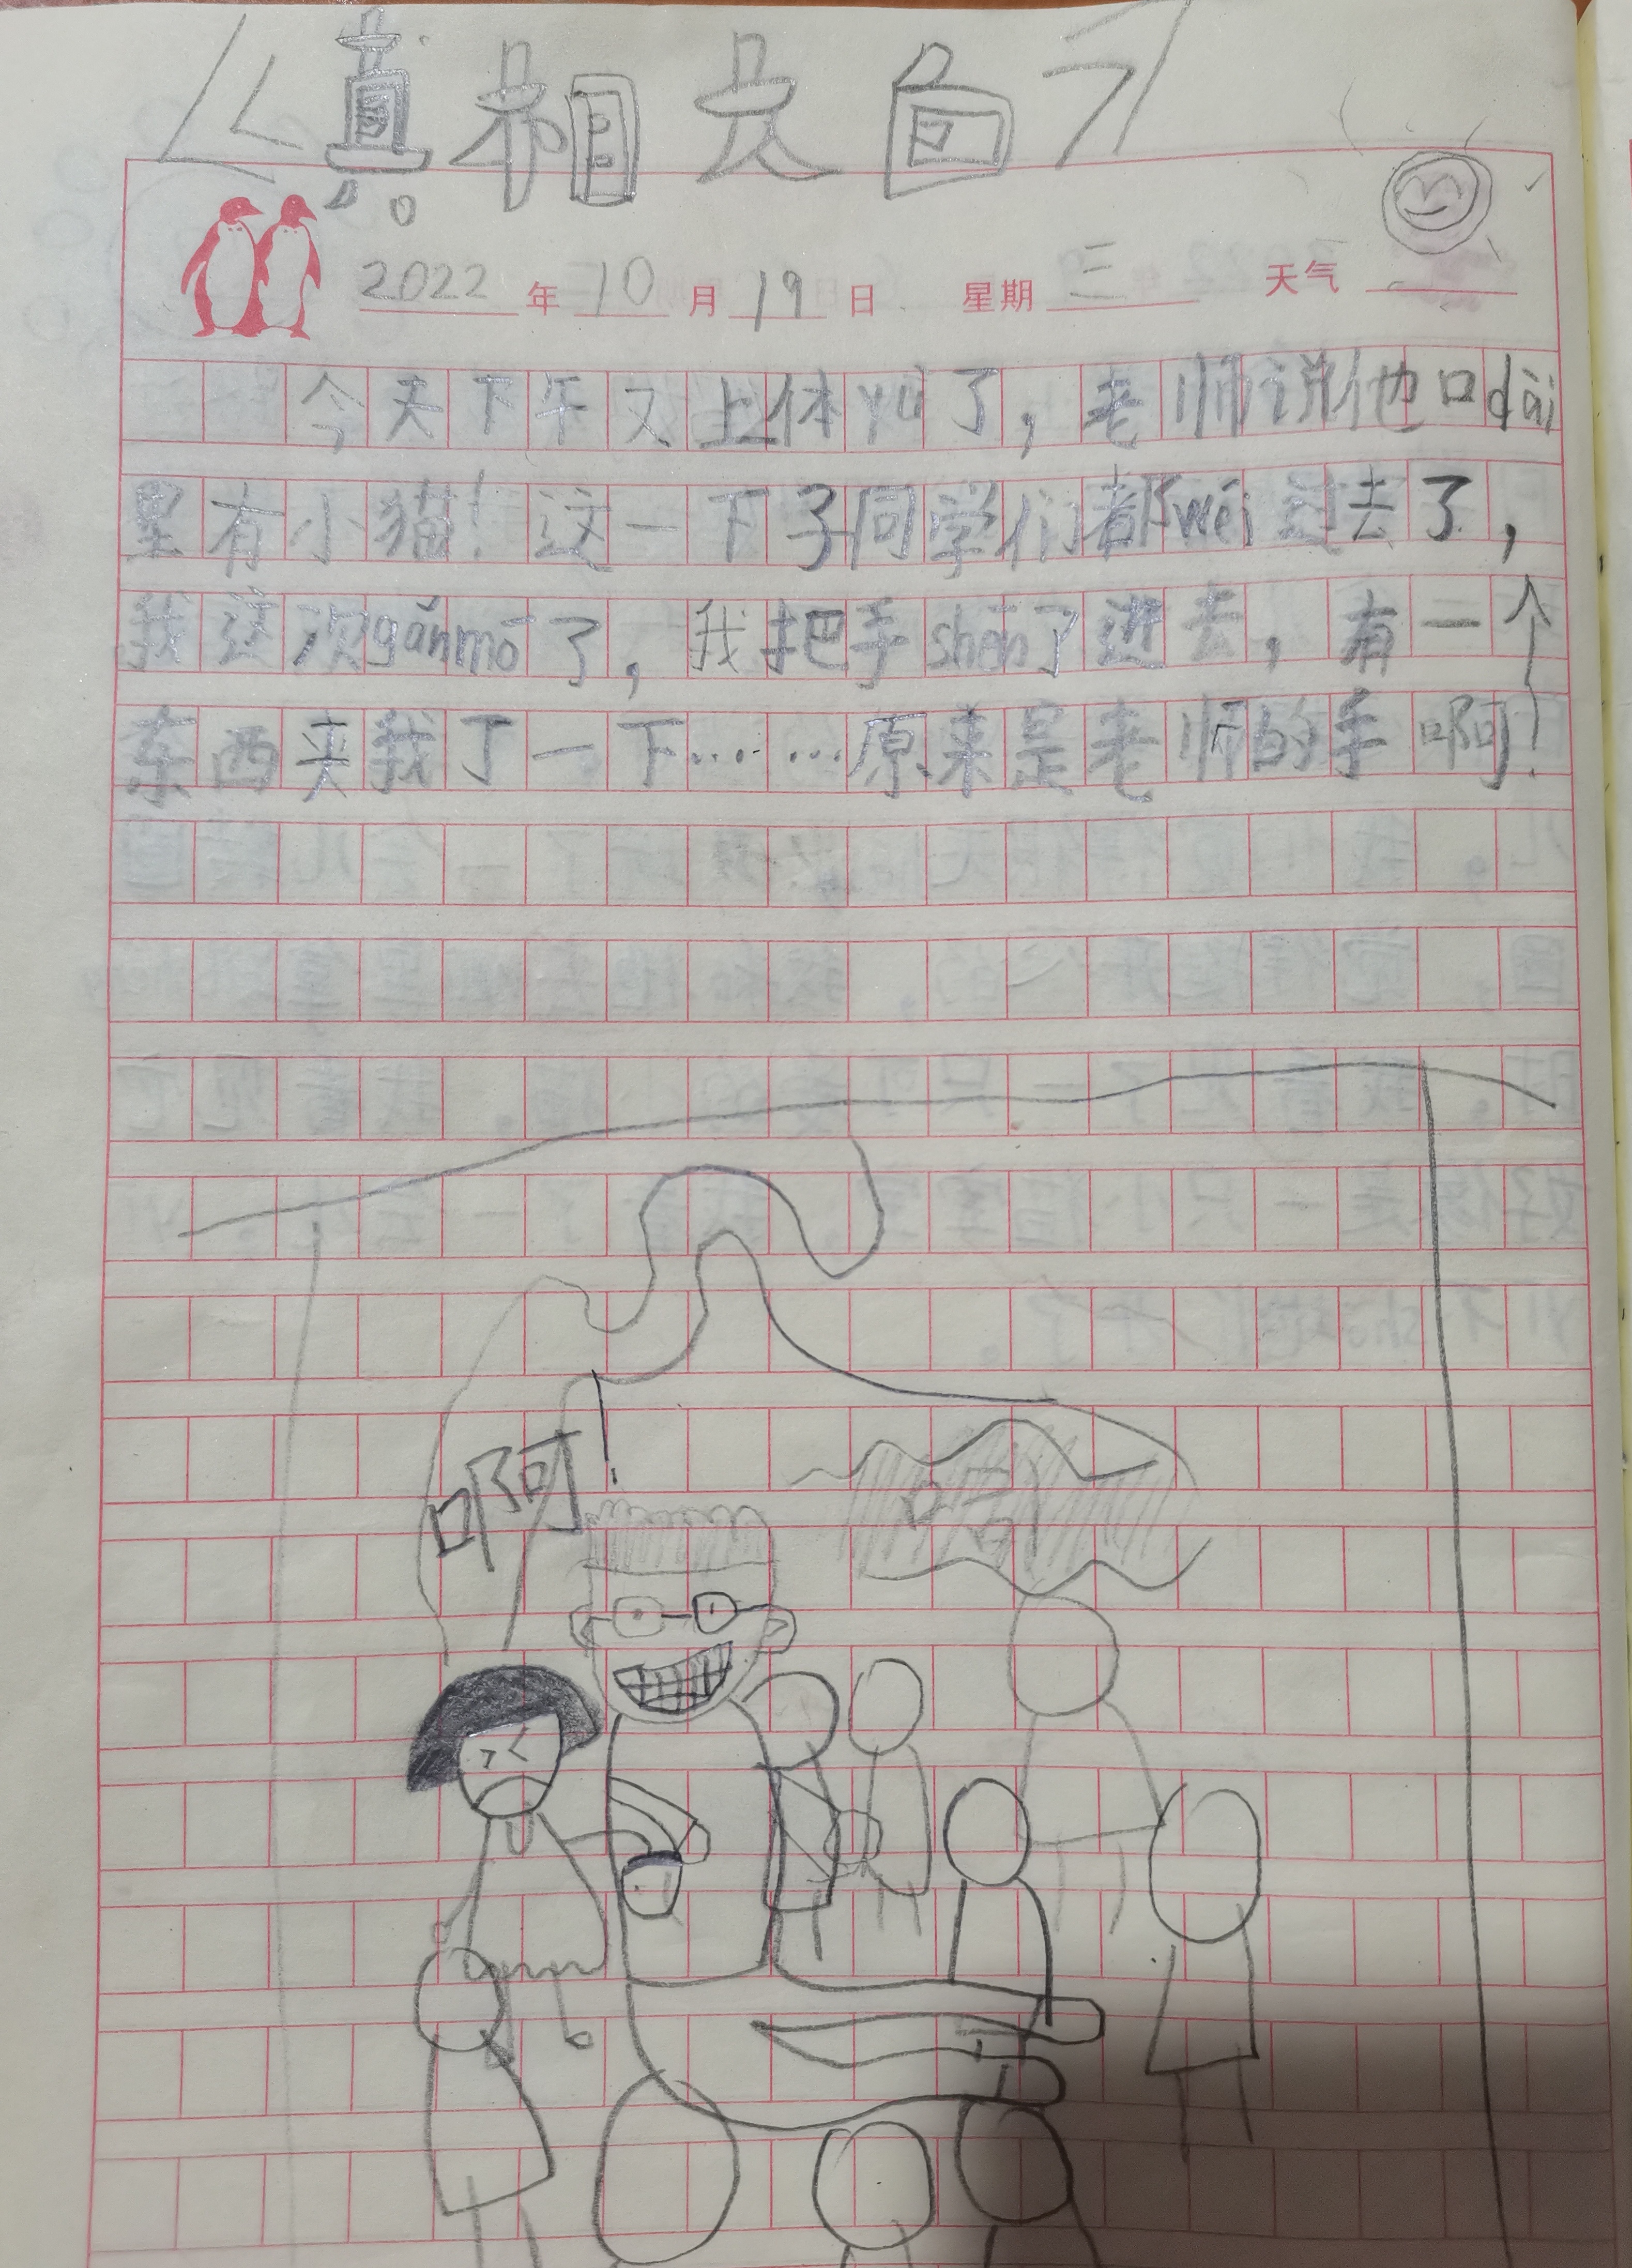 《真相大白》
2022年10月19日 星期三 天气
今天下午又上体yù了，老师说他口dài
里有小猫！这一下子同学们都wéi过去了，
我这次gǎnmō了，我把手shēn了进去，有一个
东西夹我了一下……原来是老师的手啊！
啊！
哈